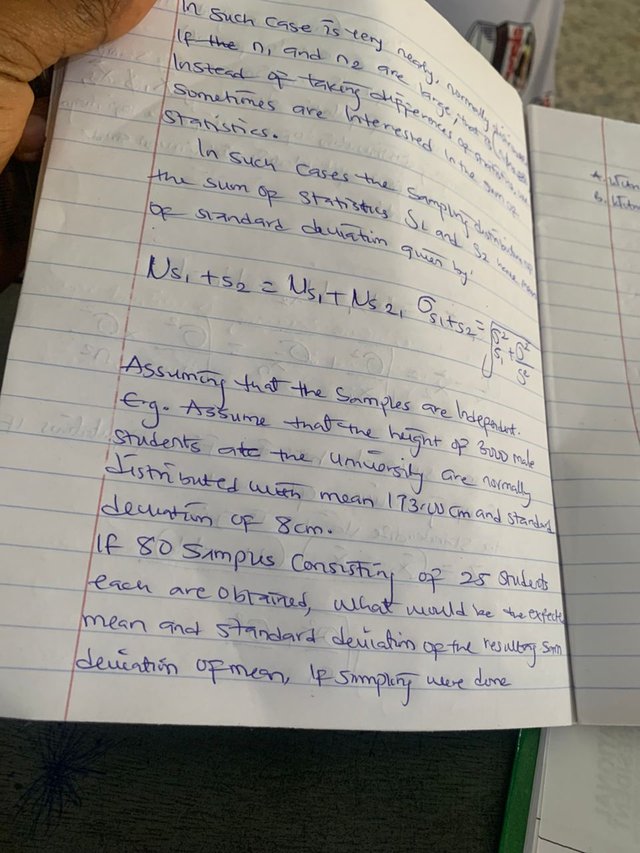 In such case is very nearly, normally
If the n1 and n2 are large, that is
Instead of taking differences of statistics, we
sometimes are Interested in the sum of
statistics.
In such cases the sampling distribution of
the sum of statistics S1 and S2 have mean
of standard deviation given by:
Ns1 + s2 = Ns1 + Ns2, σs1+s2 = √σ²s1 + σ²s2
Assuming that the samples are Independent.
E.g. Assume that the height of 3000 male
students at the university are normally
distributed with mean 173.00 cm and standard
deviation of 8cm.
If 80 samples consisting of 25 students
each are obtained, what would be the expected
mean and standard deviation of the resulting sam
deviation of mean, If sampling were done
A. With
B. With